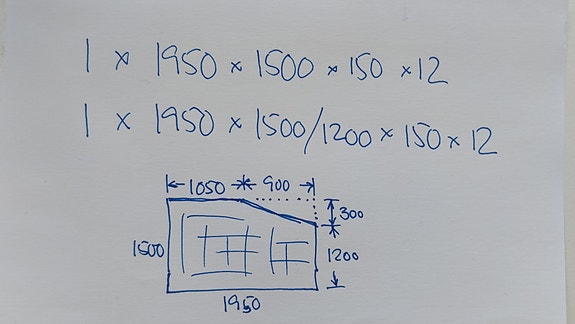 1 × 1950 × 1500 × 150 × 12
1 × 1950 × 1500/1200 × 150 × 12
1050 900
300
1500 1200
1950